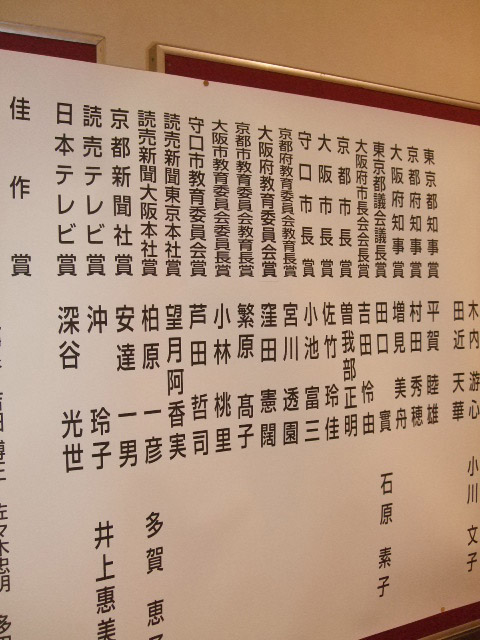 木内 游心 小川 文子
田近 天華
東京都知事賞 平賀 睦雄
京都府知事賞 村田 秀穂
大阪府知事賞 増見 美舟
東京都議会議長賞 田口 實 石原 素子
大阪府市長会会長賞 吉田 怜由
京都市長賞 曽我部正明
大阪市長賞 佐竹 玲佳
守口市長賞 小池 富三
京都府教育委員会教育長賞 宮川 透園
大阪府教育委員会賞 窪田 憲闊
京都市教育委員会教育長賞 繁原 髙子
大阪市教育委員会委員長賞 小林 桃里
守口市教育委員会賞 芦田 哲司
読売新聞東京本社賞 望月阿香実
読売新聞大阪本社賞 柏原 一彦 多賀 恵子
京都新聞社賞 安達 一男
読売テレビ賞 沖 玲子 井上恵美
日本テレビ賞 深谷 光世
佳作賞
吉田 博子 佐々木忠明 多